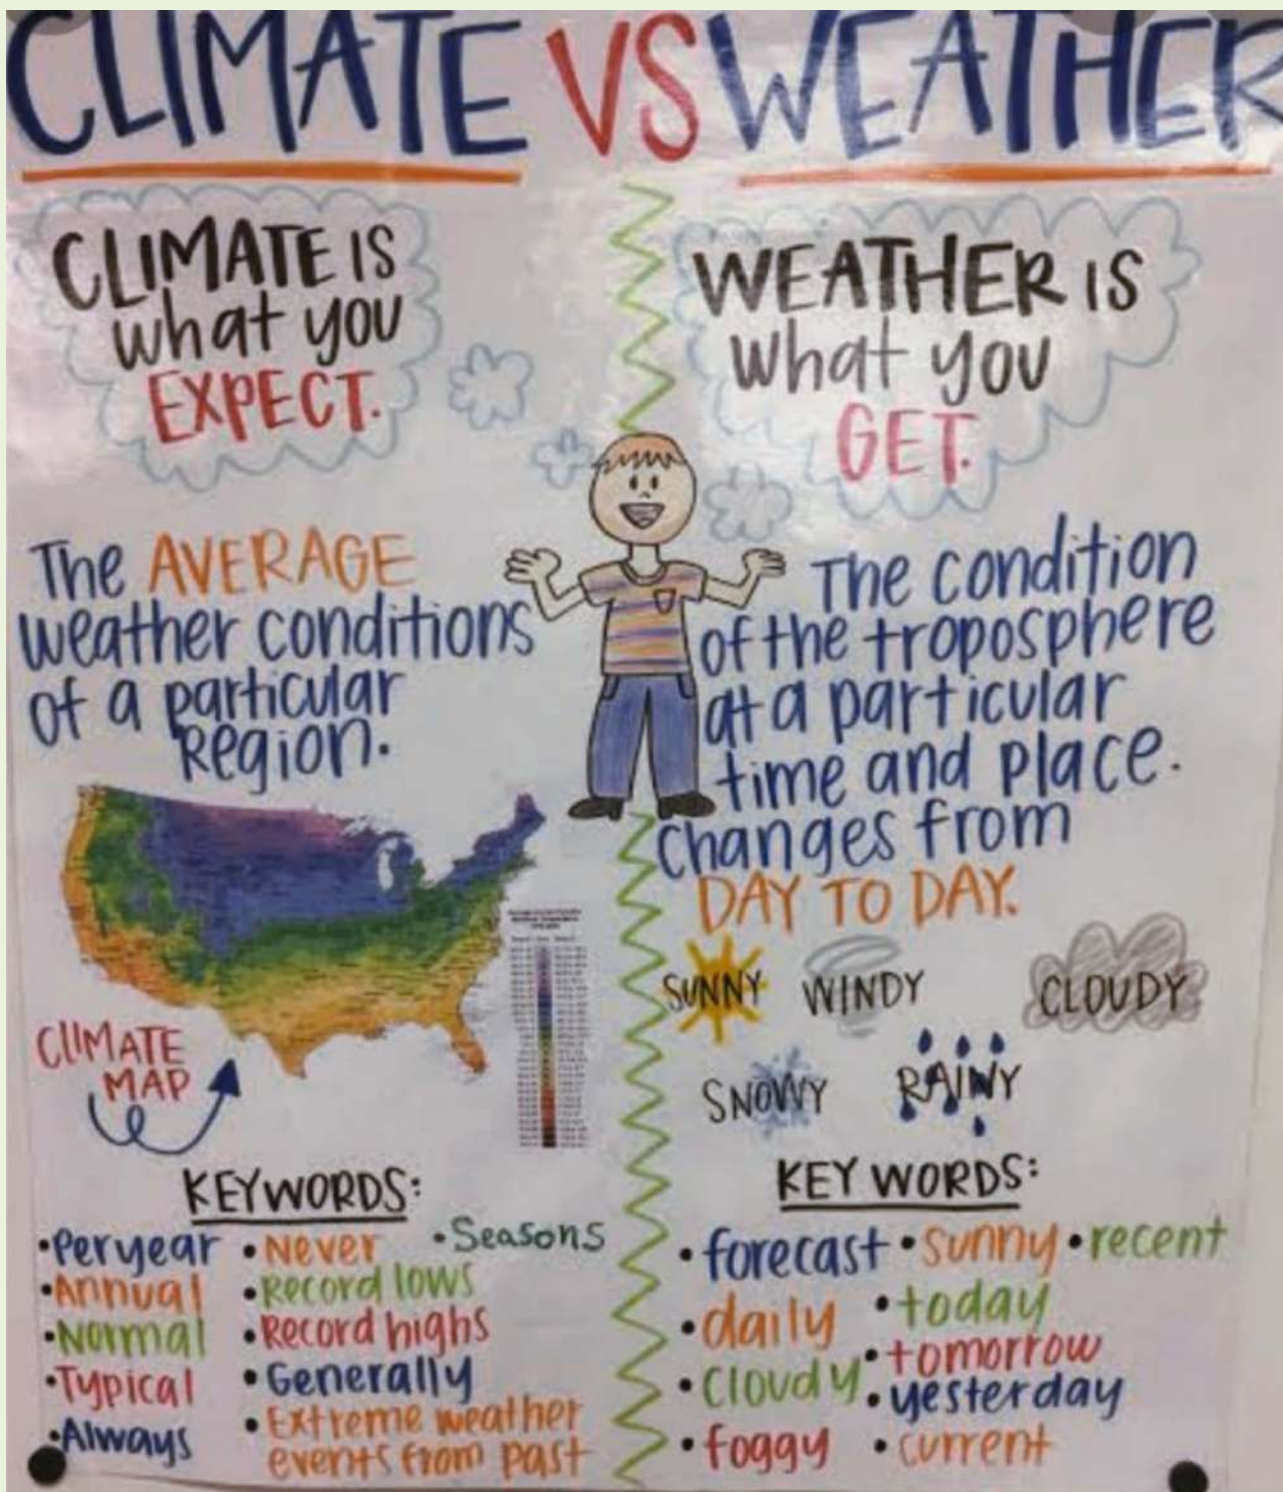 CLIMATE VS WEATHER
CLIMATE IS
what you
EXPECT.
The AVERAGE
weather conditions
of a particular
Region.
CLIMATE
MAP
KEYWORDS:
•Per year
•Annual
•Normal
•Typical
•Always
•Never
•Record lows
•Record highs
•Generally
•Extreme weather
events from past
•Seasons
WEATHER IS
what you
GET.
The condition
of the troposphere
at a particular
time and place.
Changes from
DAY TO DAY.
SUNNY WINDY CLOUDY
SNOWY RAINY
KEY WORDS:
•forecast
•daily
•cloudy
•foggy
•sunny
•today
•tomorrow
•yesterday
•current
•recent